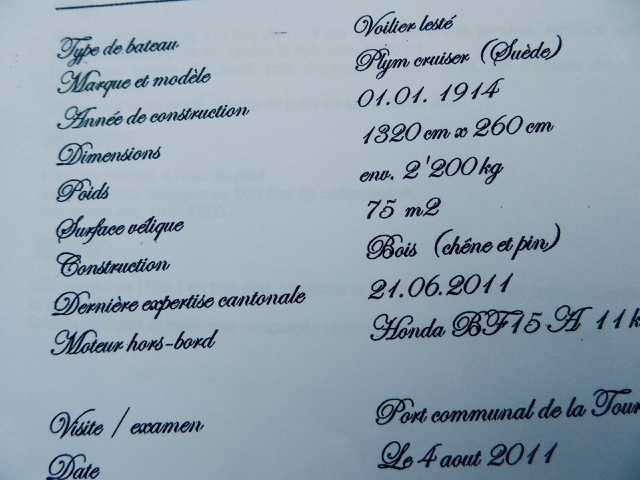 Type de bateau Voilier lesté
Marque et modèle Plym cruiser (Suède)
Année de construction 01.01. 1914
Dimensions 1320 cm x 260 cm
Poids env. 2'200 kg
Surface vélique 75 m2
Construction Bois (chêne et pin)
Dernière expertise cantonale 21.06.2011
Moteur hors-bord Honda BF15 A 11 k
Visite / examen Port communal de la Tour
Date Le 4 aout 2011